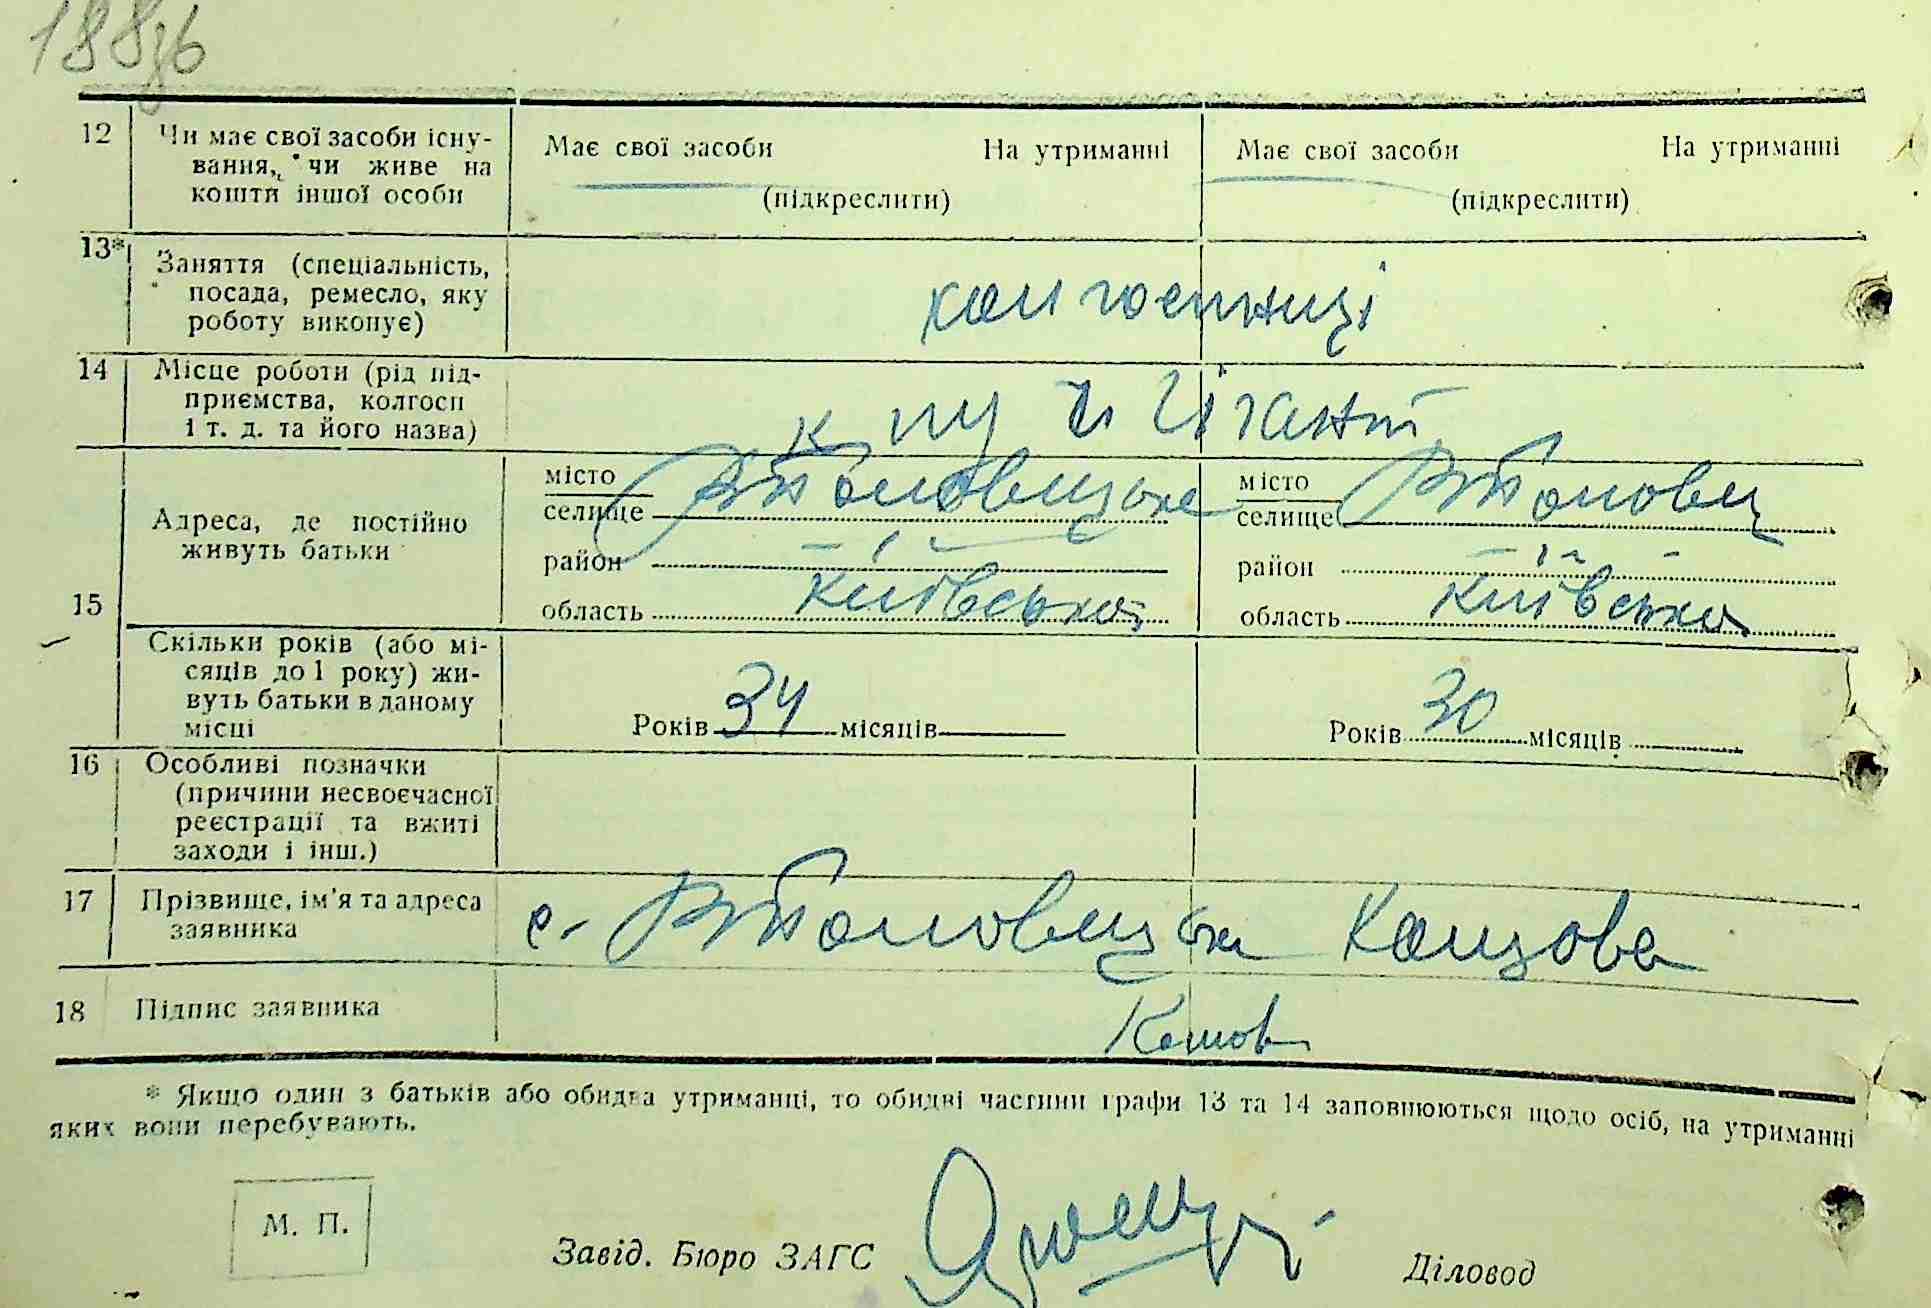 188зв
12 Чи має свої засоби існу-
вання, чи живе на
кошти іншої особи
Має свої засоби На утриманні
(підкреслити)
Має свої засоби На утриманні
(підкреслити)
13* Заняття (спеціальність,
посада, ремесло, яку
роботу виконує)
14 Місце роботи (рід під-
приємства, колгосп
і т. д. та його назва)
Гігант
15 Адреса, де постійно
живуть батьки
місто
селище
район
область Київська
місто
селище
район
область Київська
Скільки років (або мі-
сяців до 1 року) жи-
вуть батьки в даному
місці
Років 34 місяців
Років 30 місяців
16 Особливі позначки
(причини несвоєчасної
реєстрації та вжиті
заходи і інш.)
17 Прізвище, ім'я та адреса
заявника
с.
18 Підпис заявника
* Якщо один з батьків або обидва утриманці, то обидві частини графи 13 та 14 заповнюються щодо осіб, на утриманні
яких вони перебувають.
М. П.
Завід. Бюро ЗАГС
Діловод